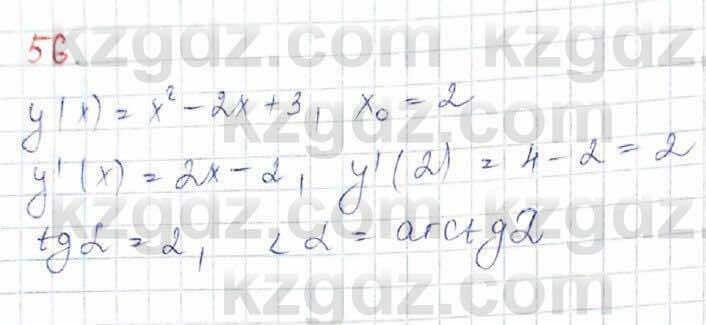 kzgdz.com
56.
y(x) = x² - 2x + 3, x₀ = 2
kzgdz.com
y'(x) = 2x - 2, y'(2) = 4 - 2 = 2
kzgdz.com
tg α = 2, < α = arctg 2
kzgdz.com